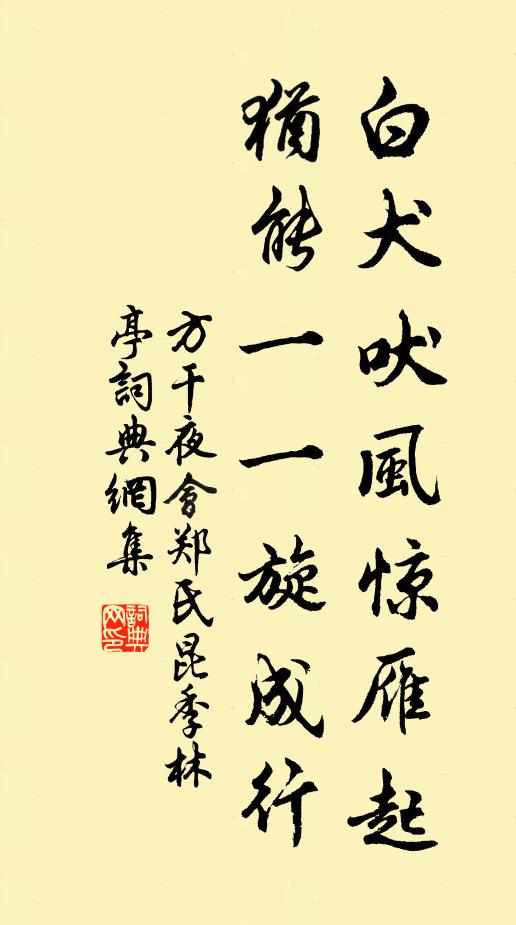 白犬吠風惊雁起
猶能一一旋成行
方干夜會郑氏昆季林
亭詞典網集
詞典
网印